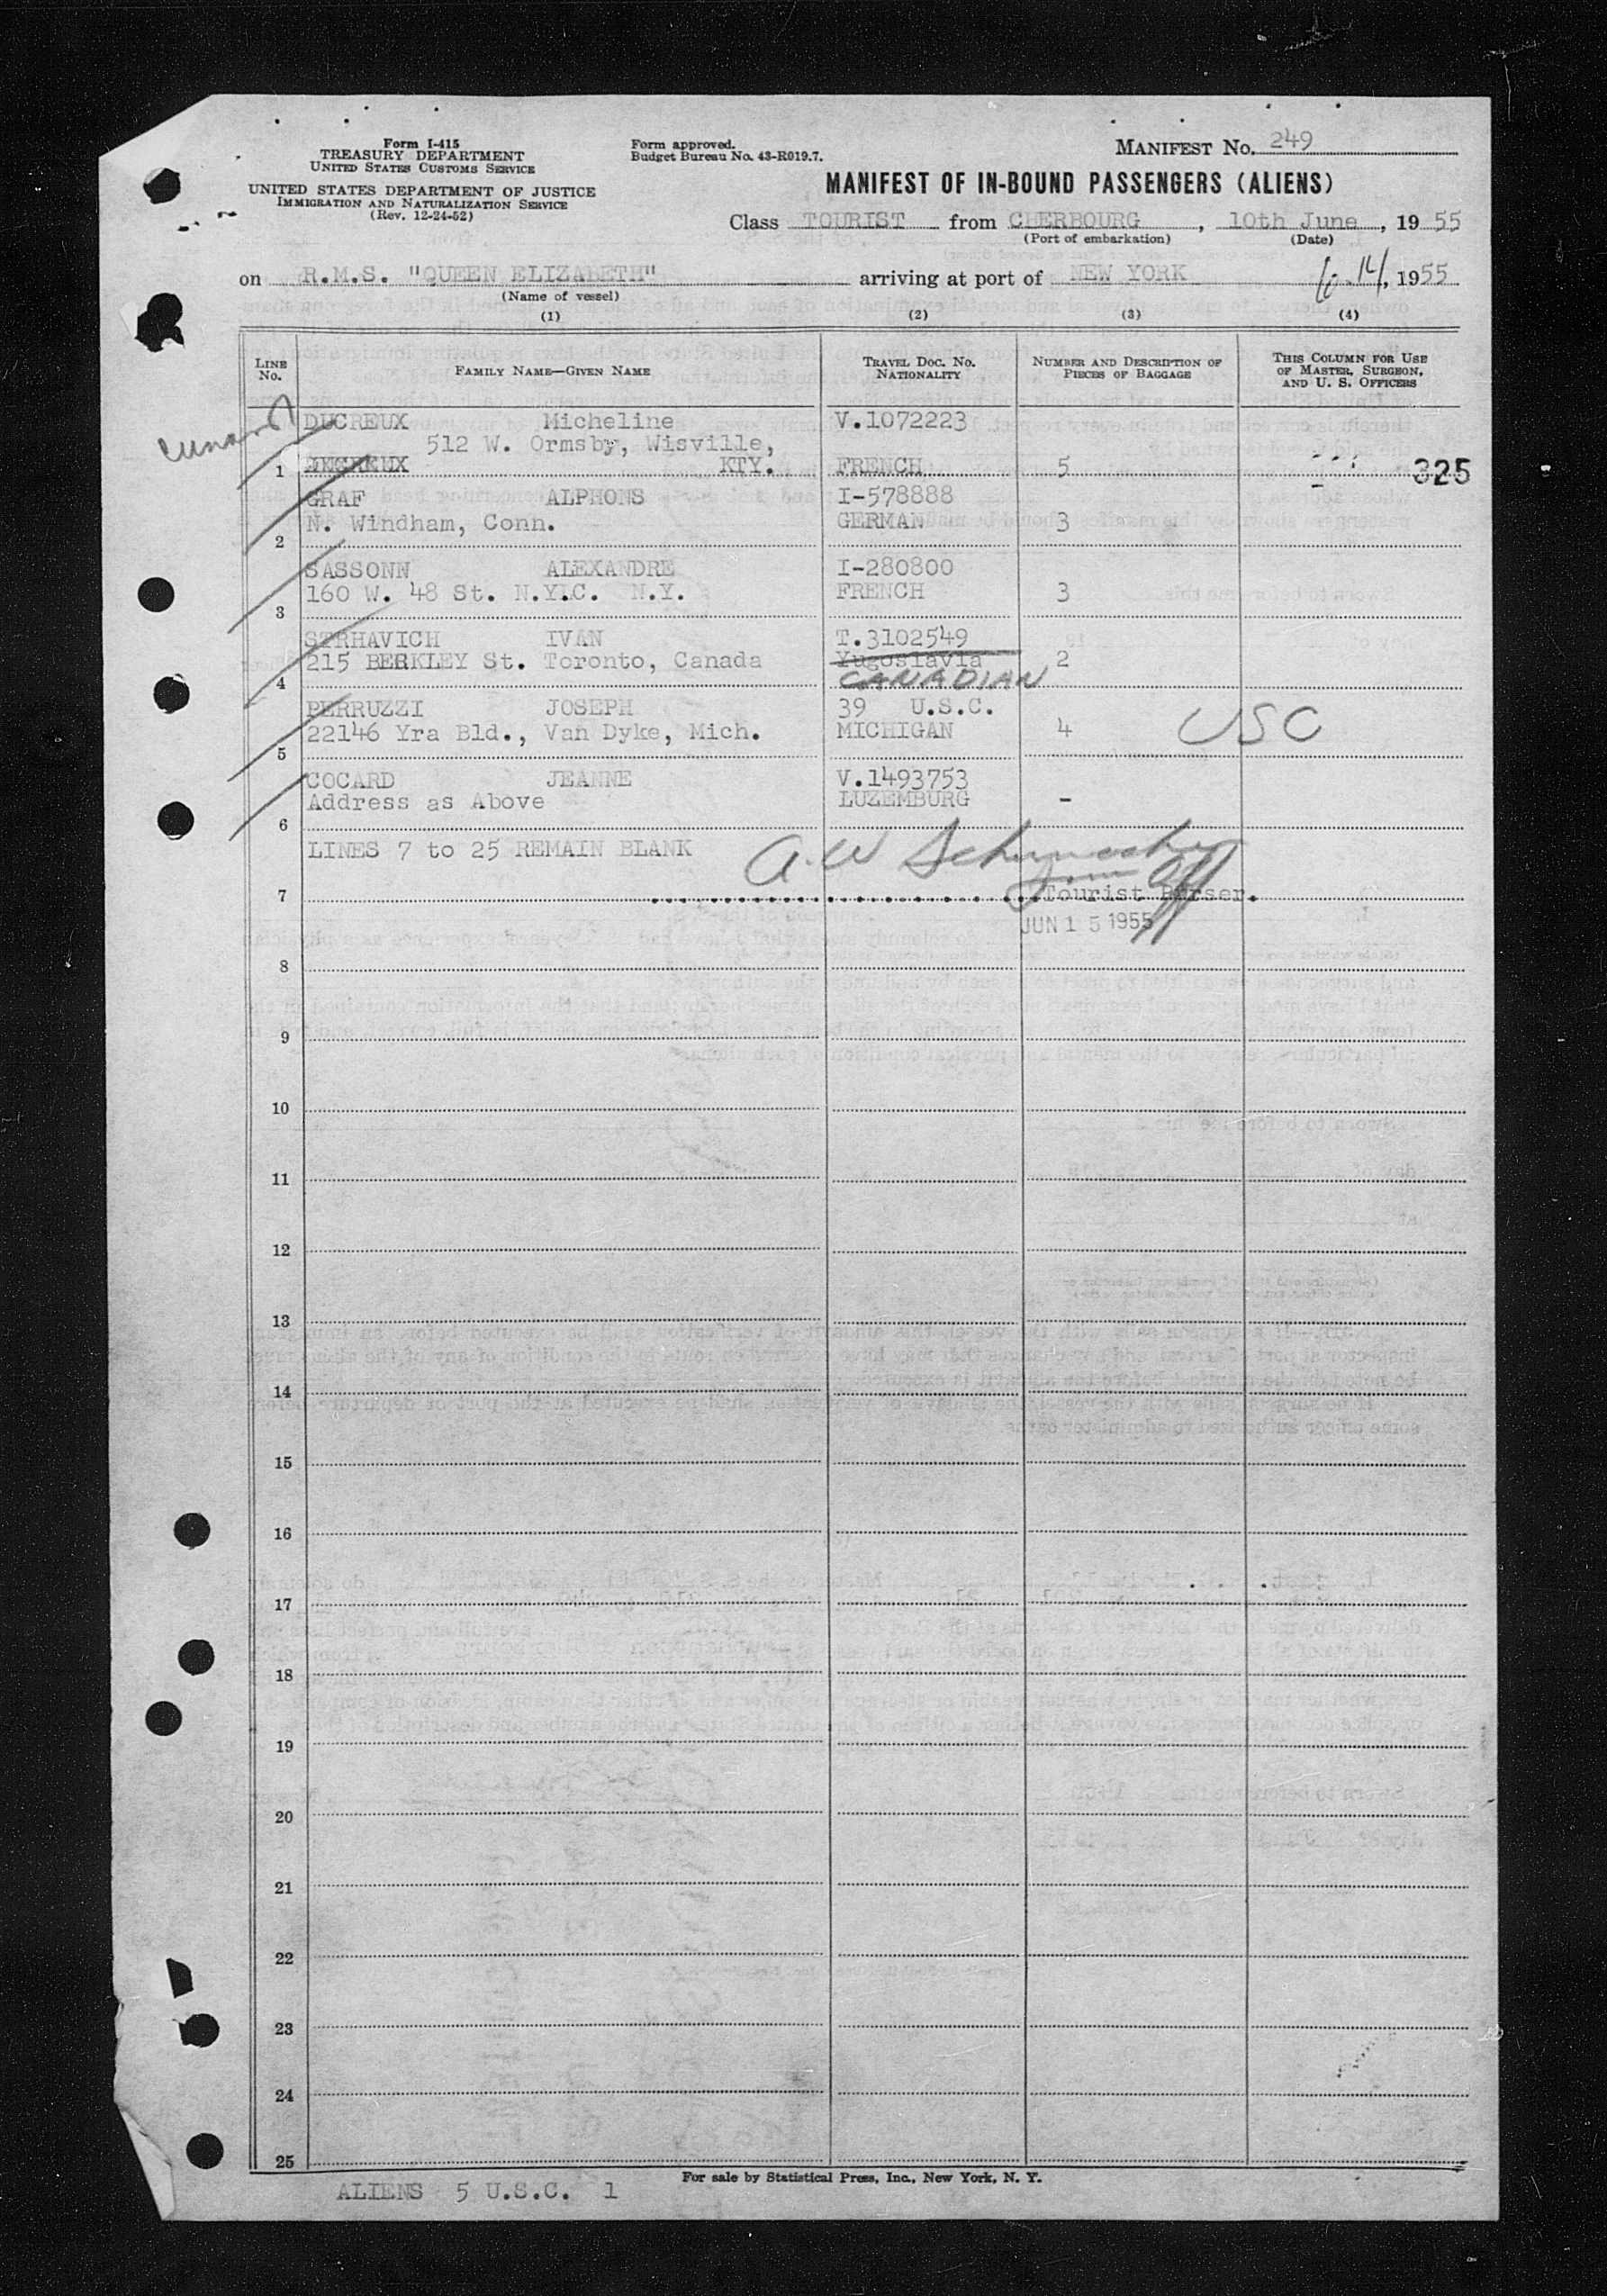 Form I-415
TREASURY DEPARTMENT
UNITED STATES CUSTOMS SERVICE
UNITED STATES DEPARTMENT OF JUSTICE
IMMIGRATION AND NATURALIZATION SERVICE
(Rev. 12-24-52)
Form approved.
Budget Bureau No. 43-R019.7.
MANIFEST No. 249
MANIFEST OF IN-BOUND PASSENGERS (ALIENS)
Class TOURIST from CHERBOURG, 10th June, 19 55
(Port of embarkation) (Date)
on R.M.S. "QUEEN ELIZABETH" arriving at port of NEW YORK 6.14, 1955
(Name of vessel)
(1) (2) (3) (4)
LINE No.
FAMILY NAME—GIVEN NAME
TRAVEL DOC. No. NATIONALITY
NUMBER AND DESCRIPTION OF PIECES OF BAGGAGE
THIS COLUMN FOR USE OF MASTER, SURGEON, AND U. S. OFFICERS
Cunard
DUCREUX Micheline V.1072223
512 W. Ormsby, Wisville,
1 KTY. FRENCH 5 325
GRAF ALPHONS I-578888
N. Windham, Conn. GERMAN 3
2
SASSONN ALEXANDRE I-280800
160 W. 48 St. N.Y.C. N.Y. FRENCH 3
3
STRHAVICH IVAN T.3102549
215 BERKLEY St. Toronto, Canada Yugoslavia 2
4 CANADIAN
PERRUZZI JOSEPH 39 U.S.C.
22146 Yra Bld., Van Dyke, Mich. MICHIGAN 4 USC
5
COCARD JEANNE V.1493753
Address as Above LUZEMBURG -
6
LINES 7 to 25 REMAIN BLANK
7 Tourist Purser.
JUN 15 1955
8
9
10
11
12
13
14
15
16
17
18
19
20
21
22
23
24
25
For sale by Statistical Press, Inc., New York, N. Y.
ALIENS 5 U.S.C. 1